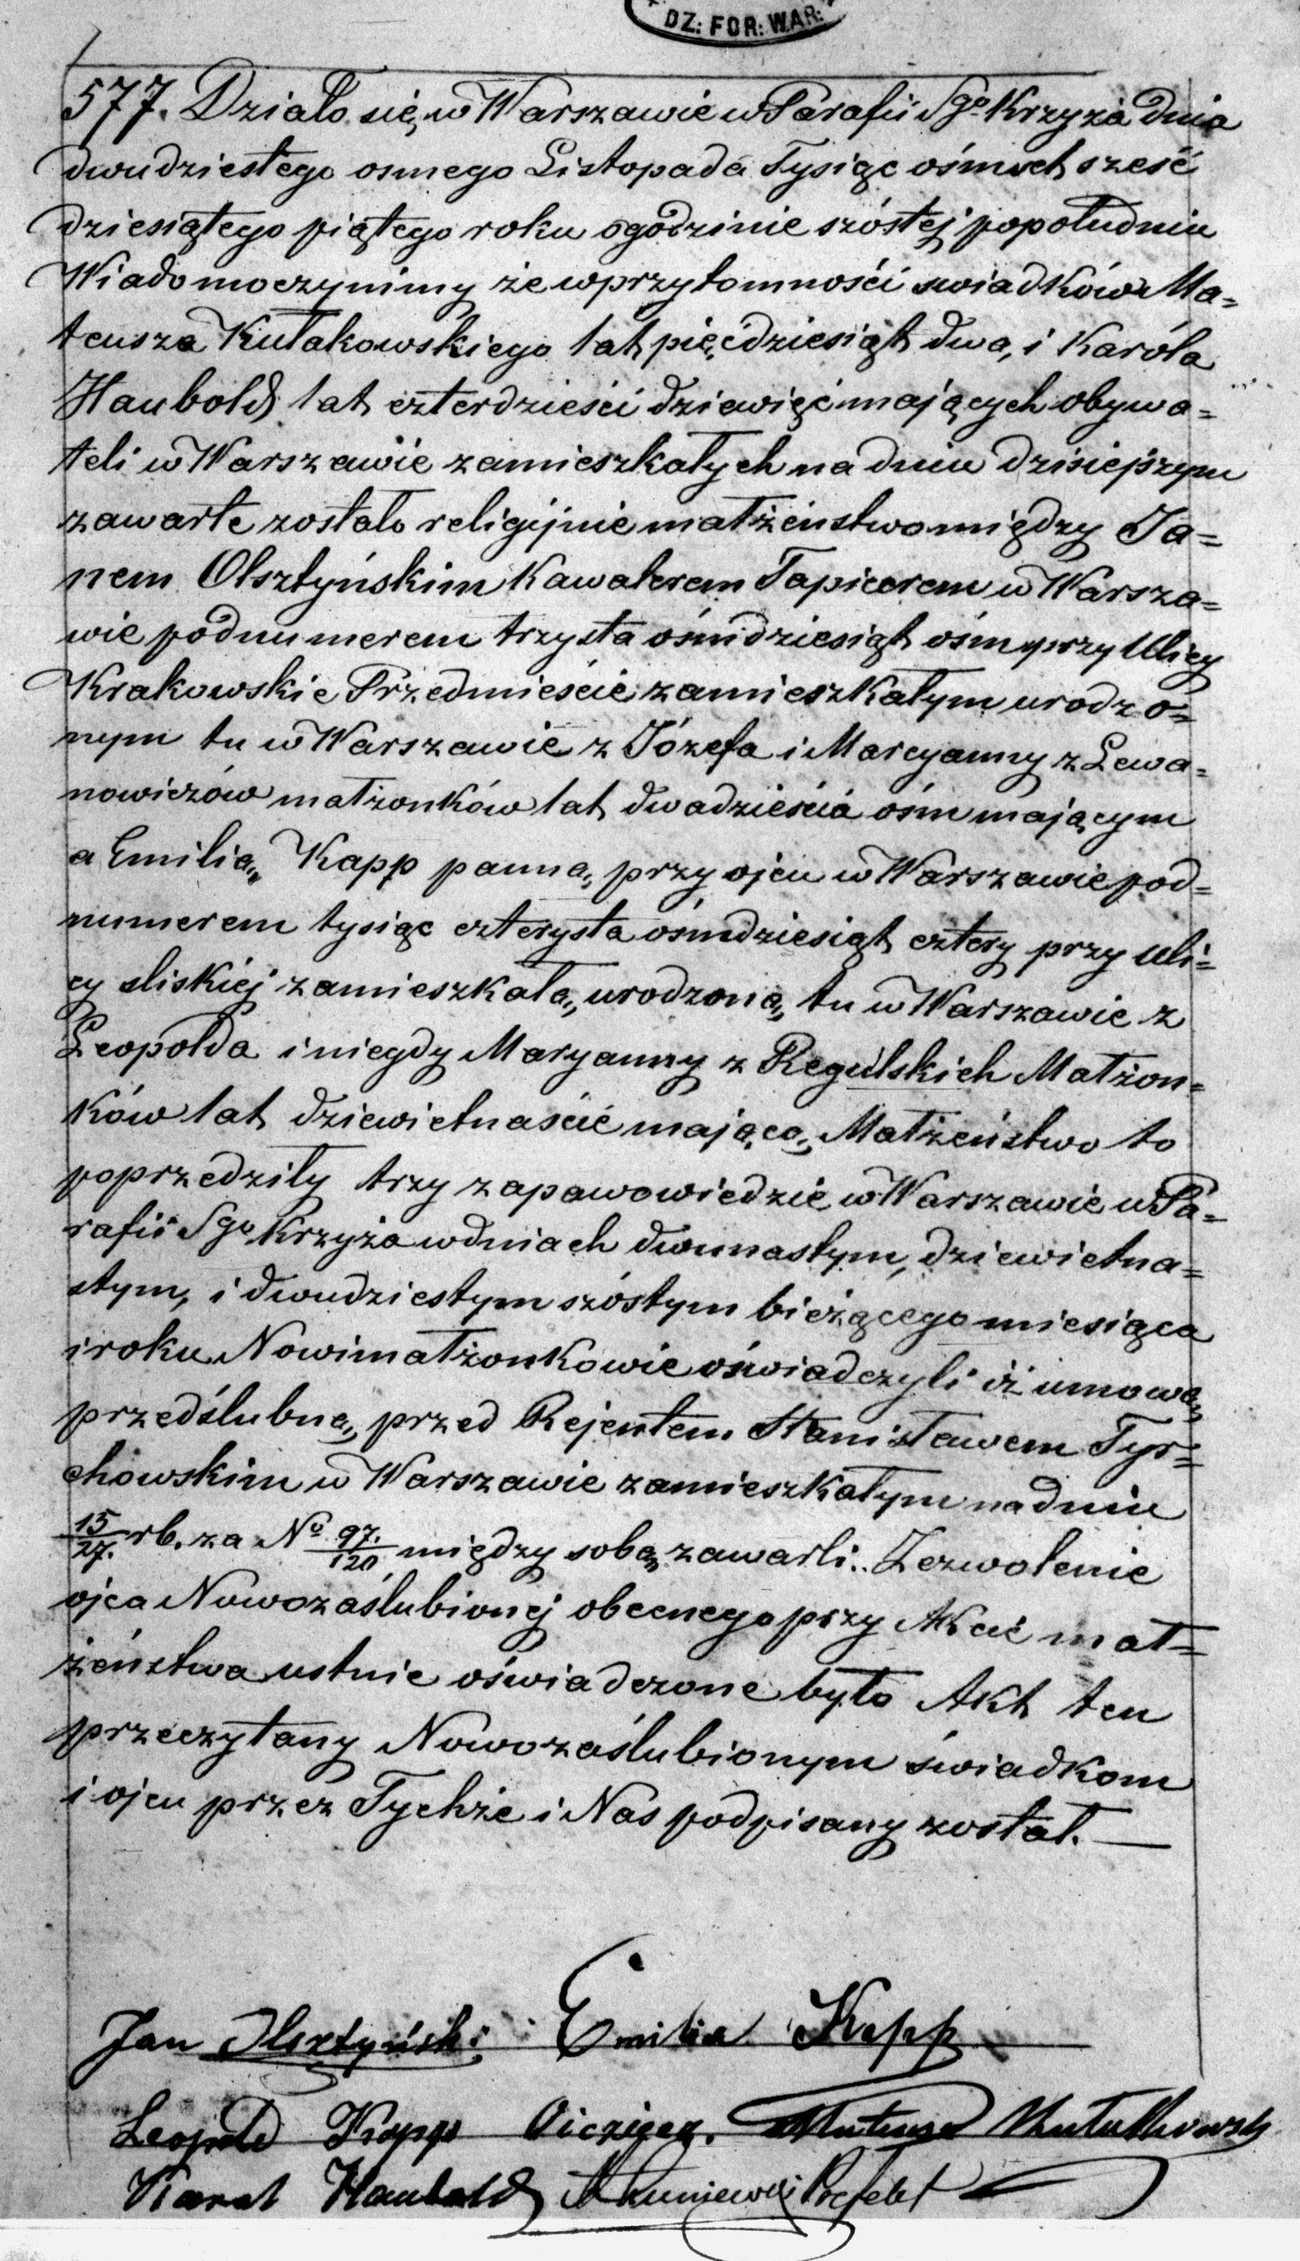 DZ: FOR: WAR:
577. Działo się w Warszawie w Parafii Sgo Krzyża dnia
dwudziestego osmego Listopada Tysiąc ośmset sześć
dziesiątego piątego roku o godzinie szóstej popołudniu
Wiadomo czynimy że w przytomności swiadków Ma=
teusza Kułakowskiego lat pięćdziesiąt dwa, i Karóla
Haubold lat czterdzieści dziewięć mających obywa=
teli w Warszawie zamieszkałych na dniu dzisiejszym
zawarte zostało religijnie małżeństwo między Ja=
nem Olsztyńskim Kawalerem Tapicerem w Warsza=
wie pod numerem trzysta ośmdziesiąt ośm przy Ulicy
Krakowskie Przedmieście zamieszkałym urodzo=
nym tu w Warszawie z Józefa i Marcyanny z Lewa=
nowiczów małżonków lat dwadzieścia ośm mającym
a Emilią Kapp panną, przy ojcu w Warszawie pod=
numerem tysiąc czterysta ośmdziesiąt cztery przy uli=
cy sliskiéj zamieszkałą, urodzoną, tu w Warszawie z
Leopolda i niegdy Maryanny z Regulskich Małżon=
ków lat dziewietnaście mającą, Małżeństwo to
poprzedziły trzy zapawowiedzie w Warszawie w Pa=
rafii Sgo Krzyża w dniach dwunastym, dziewietna=
stym, i dwudziestym szóstym bieżącego miesiąca
i roku Nowi małżonkowie oświadczyli iż umowę
przedślubną, przed Rejentem Stanisławem Tyr=
chowskim w Warszawie zamieszkałym na dniu
15/27. rb. za No 97./120 między sobą zawarli. Zezwolenie
ojca Nowozaślubionej obecnego przy Akcie mał=
żeństwa ustnie oświadczone było Akt ten
przeczytany Nowozaślubionym świadkom
i ojcu przez Tychże i Nas podpisany został.
Jan Olsztyński Emilia Kapp
Leopold Kapp Oiciec. Mateusz Kułakowski
Karol Haubold Prefekt